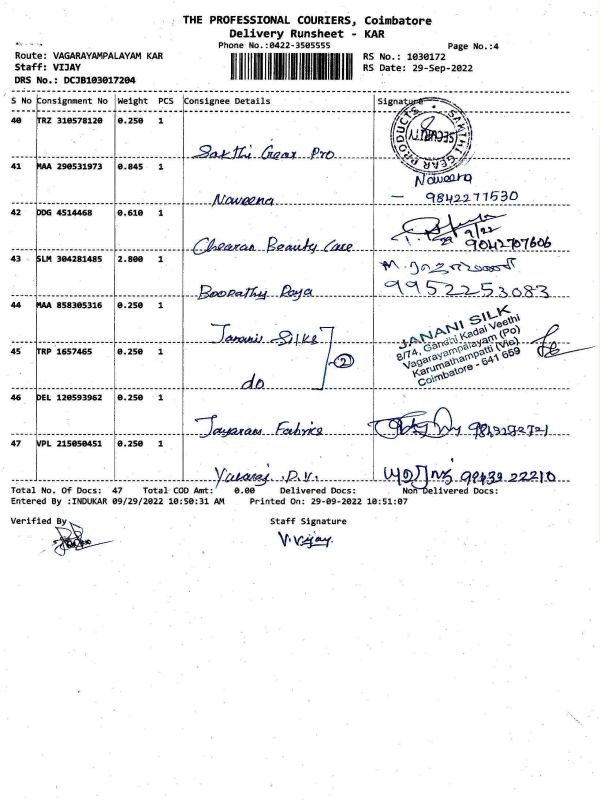 THE PROFESSIONAL COURIERS, Coimbatore
Delivery Runsheet - KAR
Phone No.:0422-3505555
Page No.:4
Route: VAGARAYAMPALAYAM KAR
RS No.: 1030172
Staff: VIJAY
RS Date: 29-Sep-2022
DRS No.: DCJB103017204
S No Consignment No Weight PCS Consignee Details Signature
40 TRZ 310578120 0.250 1
Sakthi Gear Pro
SAKTHI GEAR PRODUCTS
SECURITY
41 MAA 290531973 0.845 1
Naveena
Naveena
- 9842277530
42 DDG 4514468 0.610 1
Chearan Beauty Care
29/9/22
9042707606
43 SLM 304281485 2.800 1
Boopathy Raja
9952253083
44 MAA 858305316 0.250 1
Janani Silks
JANANI SILK
8/74, Gandhi Kadai Veethi
Vagarayampalayam (Po)
Karumathampatti (Via)
Coimbatore - 641 659
45 TRP 1657465 0.250 1
do
2
46 DEL 120593962 0.250 1
Jayaram Fabrics
47 VPL 215050451 0.250 1
Yuvaraj .D.V.
யுவராஜ் 98439 22210
Total No. Of Docs: 47 Total COD Amt: 0.00 Delivered Docs: Non Delivered Docs:
Entered By :INDUKAR 09/29/2022 10:50:31 AM Printed On: 29-09-2022 10:51:07
Verified By
Staff Signature
V.Vijay.